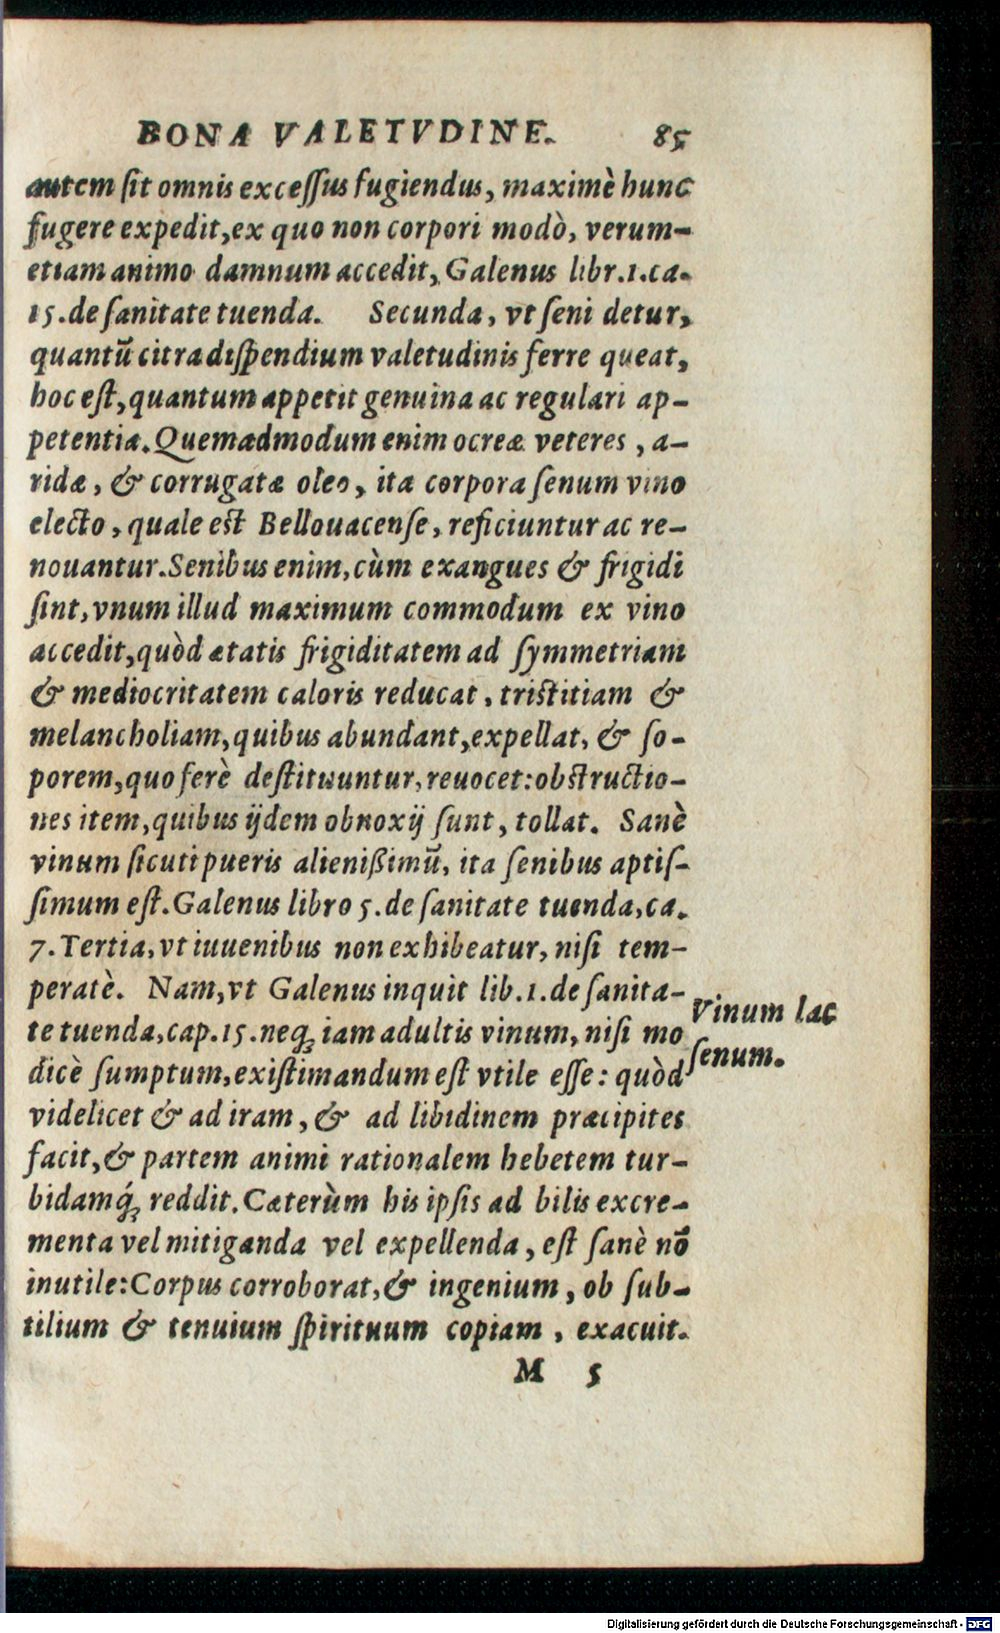 BONA VALETVDINE. 85
autem ſit omnis exceſſus fugiendus, maximè hunc
fugere expedit, ex quo non corpori modò, verum-
etiam animo damnum accedit, Galenus libr.1.ca.
15.de ſanitate tuenda. Secunda, vt ſeni detur,
quantū citra diſpendium valetudinis ferre queat,
hoc eſt, quantum appetit genuina ac regulari ap-
petentia. Quemadmodum enim ocreæ veteres, a-
ridæ, & corrugatæ oleo, ita corpora ſenum vino
electo, quale eſt Bellouacenſe, reficiuntur ac re-
nouantur. Senibus enim, cùm exangues & frigidi
ſint, vnum illud maximum commodum ex vino
accedit, quòd ætatis frigiditatem ad ſymmetriam
& mediocritatem caloris reducat, triſtitiam &
melancholiam, quibus abundant, expellat, & ſo-
porem, quo ferè deſtituuntur, reuocet: obſtructio-
nes item, quibus ijdem obnoxij ſunt, tollat. Sanè
vinum ſicuti pueris alienißimū, ita ſenibus aptiſ-
ſimum eſt. Galenus libro 5. de ſanitate tuenda, ca.
7. Tertia, vt iuuenibus non exhibeatur, niſi tem-
peratè. Nam, vt Galenus inquit lib.1.de ſanita-
te tuenda, cap.15.neq; iam adultis vinum, niſi mo
dicè ſumptum, exiſtimandum eſt vtile eſſe: quòd
videlicet & ad iram, & ad libidinem præcipites
facit, & partem animi rationalem hebetem tur-
bidamq́; reddit. Cæterùm his ipſis ad bilis excre-
menta vel mitiganda vel expellenda, eſt ſanè nō
inutile: Corpus corroborat, & ingenium, ob ſub-
tilium & tenuium ſpirituum copiam, exacuit.
M 5
Vinum lac
ſenum.
Digitalisierung gefördert durch die Deutsche Forschungsgemeinschaft - DFG